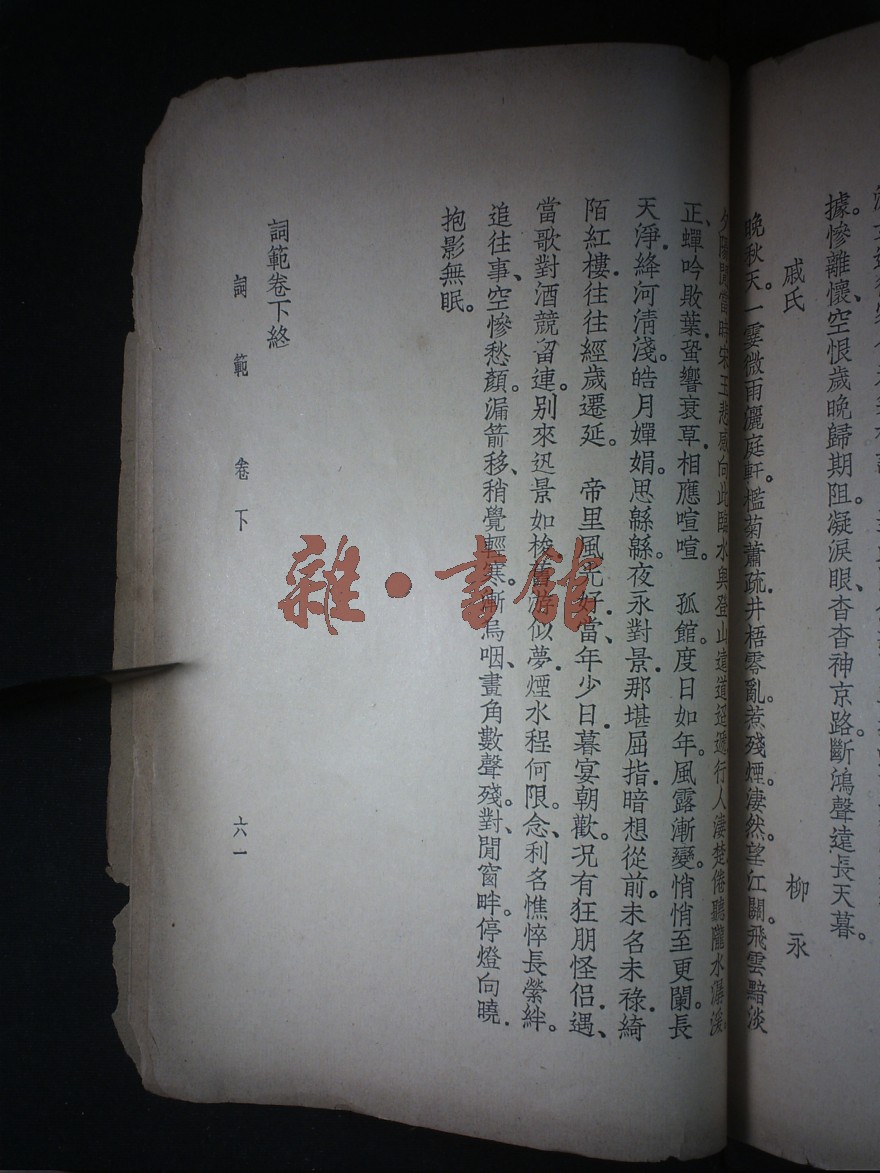 據。慘離懷、空恨歲晚歸期阻。凝淚眼、杳杳神京路。斷鴻聲遠長天暮。
戚氏 柳永
晚秋天。一霎微雨灑庭軒。檻菊蕭疏.井梧零亂.惹殘煙。淒然。望江關。飛雲黯淡
夕陽間。當時宋玉悲感.向此臨水與登山。遠道迢遞.行人淒楚.倦聽隴水潺湲。
正、蟬吟敗葉.蛩響衰草.相應喧喧。 孤館度日如年。風露漸變.悄悄至更闌。長
天淨.絳河清淺.皓月嬋娟。思緜緜。夜永對景.那堪屈指.暗想從前。未名未祿.綺
陌紅樓.往往經歲遷延。 帝里風光好.當、年少日.暮宴朝歡。況有狂朋怪侶.遇、
當歌對酒競留連。別來迅景如梭.舊遊似夢.煙水程何限。念、利名憔悴長縈絆。
追往事、空慘愁顏。漏箭移、稍覺輕寒。漸嗚咽、畫角數聲殘。對、閒窗畔。停燈向曉.
抱影無眠。
詞範卷下終
詞範 卷下 六一
雜·書館